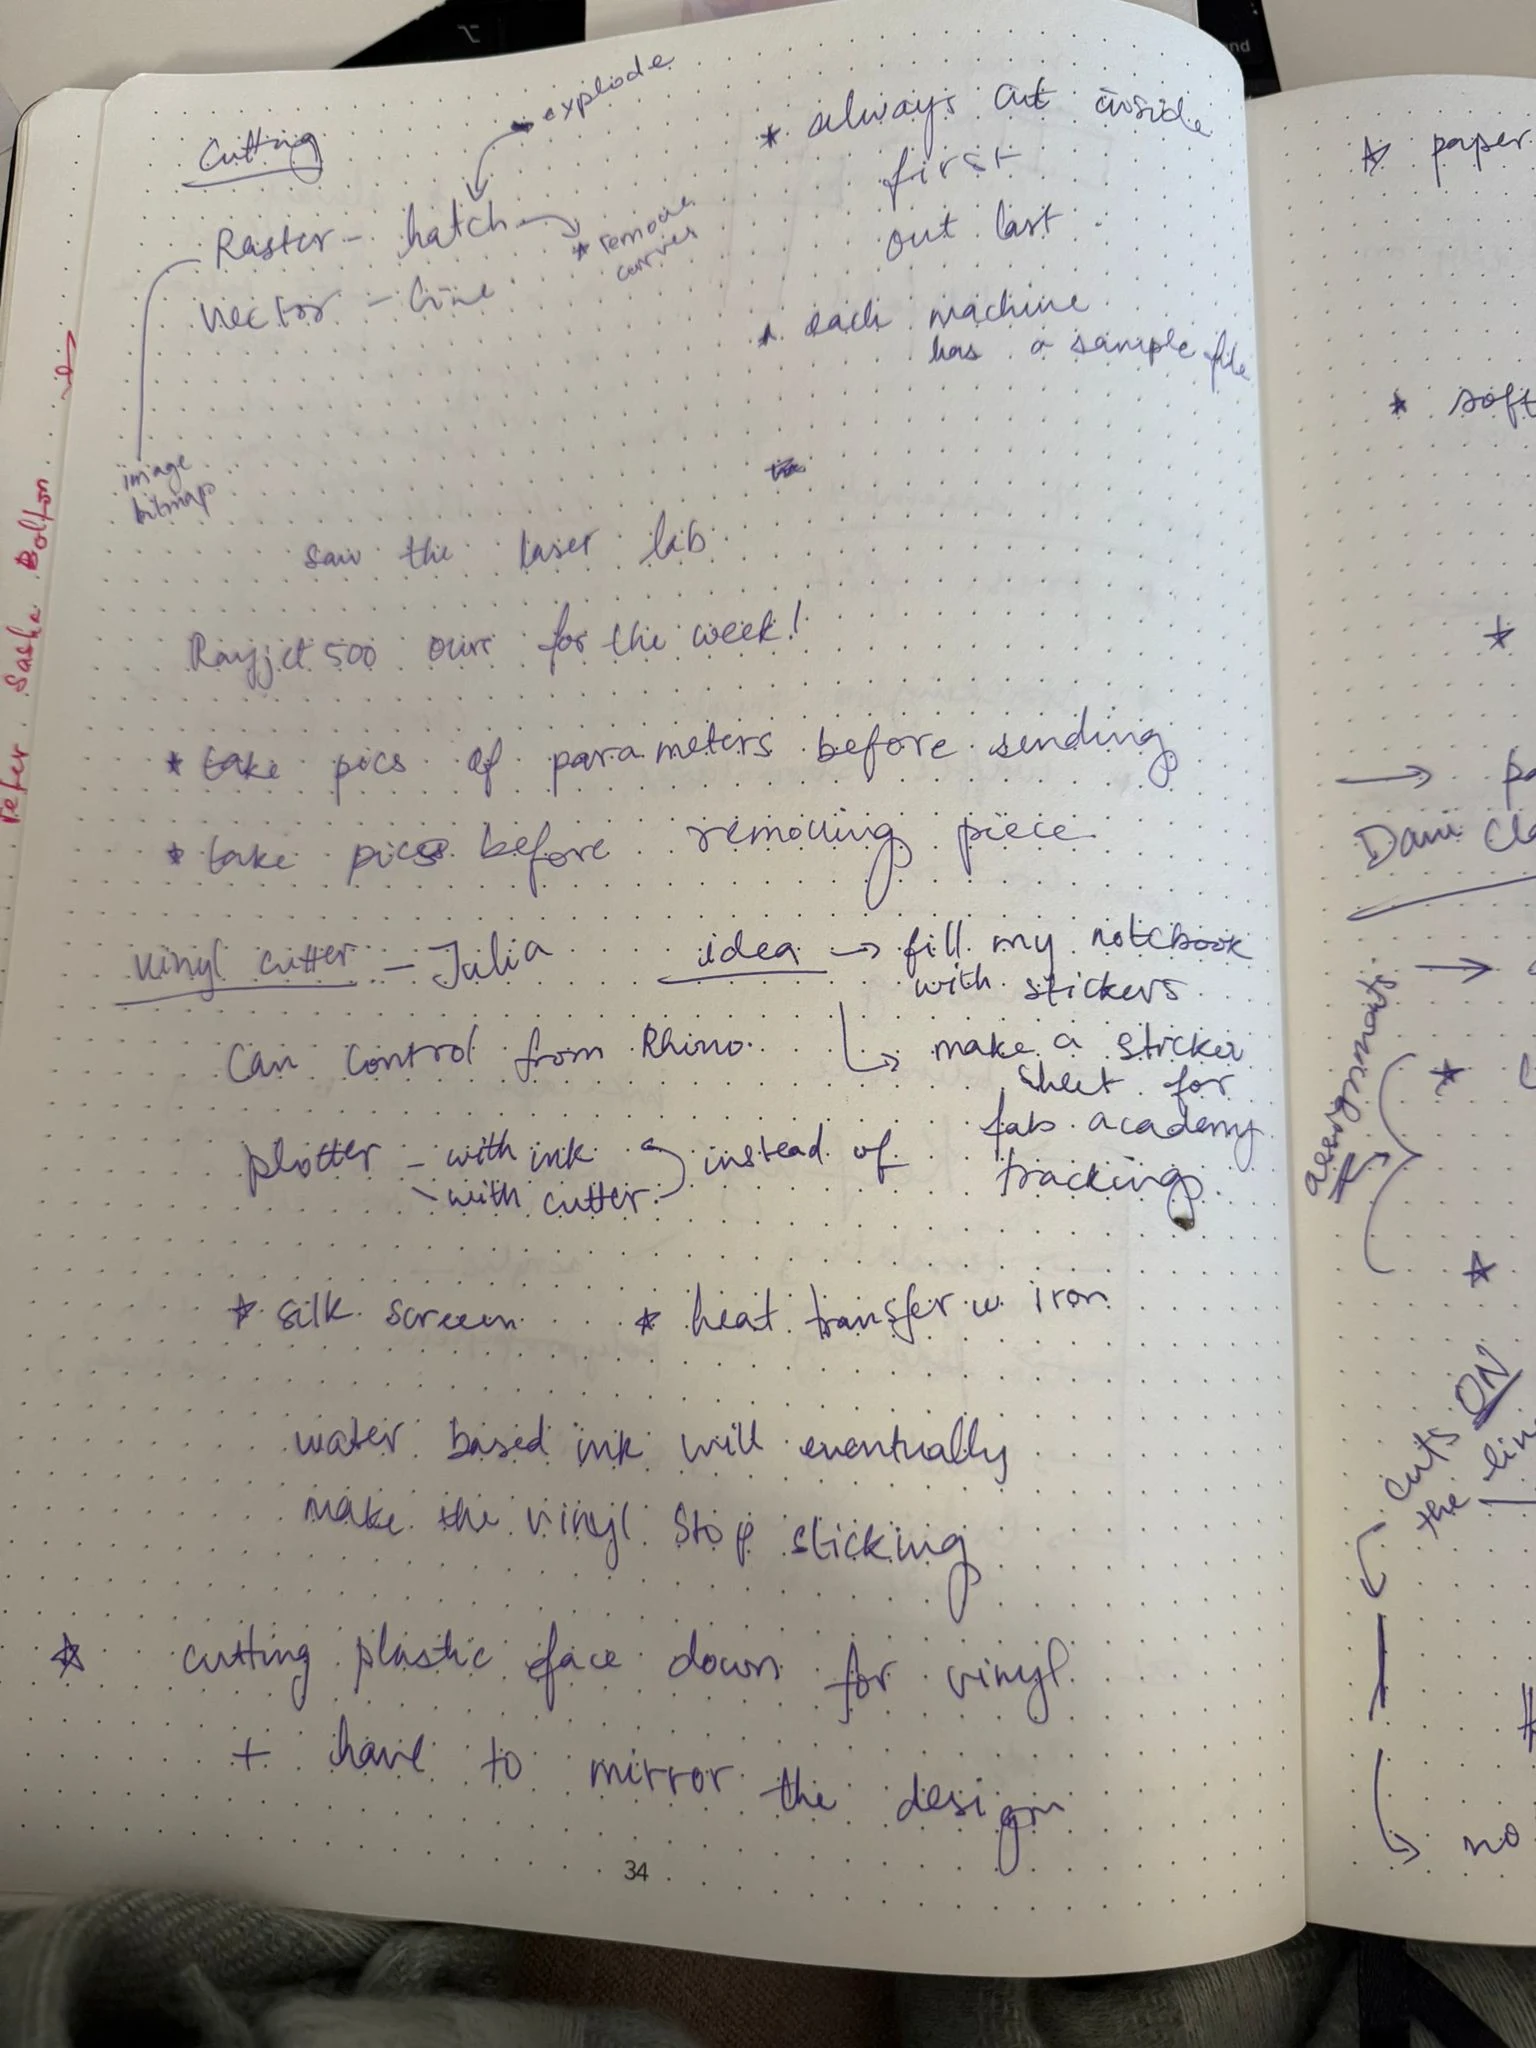 Cutting
explode
Raster - hatch
* remove
curves
vector - line
image
bitmap
* always cut inside
first
out last
* each machine
has a sample file
saw the laser lab
Rayjet 500 ours for the week!
* take pics of parameters before sending
* take pics before removing piece
vinyl cutter - Julia
idea → fill my notebook
with stickers
make a sticker
sheet for
fab academy
tracking
Can control from Rhino
plotter - with ink
- with cutter
instead of
* silk screen
* heat transfer w iron
water based ink will eventually
make the vinyl stop sticking
☆ cutting plastic face down for vinyl
+ have to mirror the design
34
refer Sasha Bolton
☆ paper
* soft
*
→
Dani
→
assignments
*
*
cuts ON
the
no